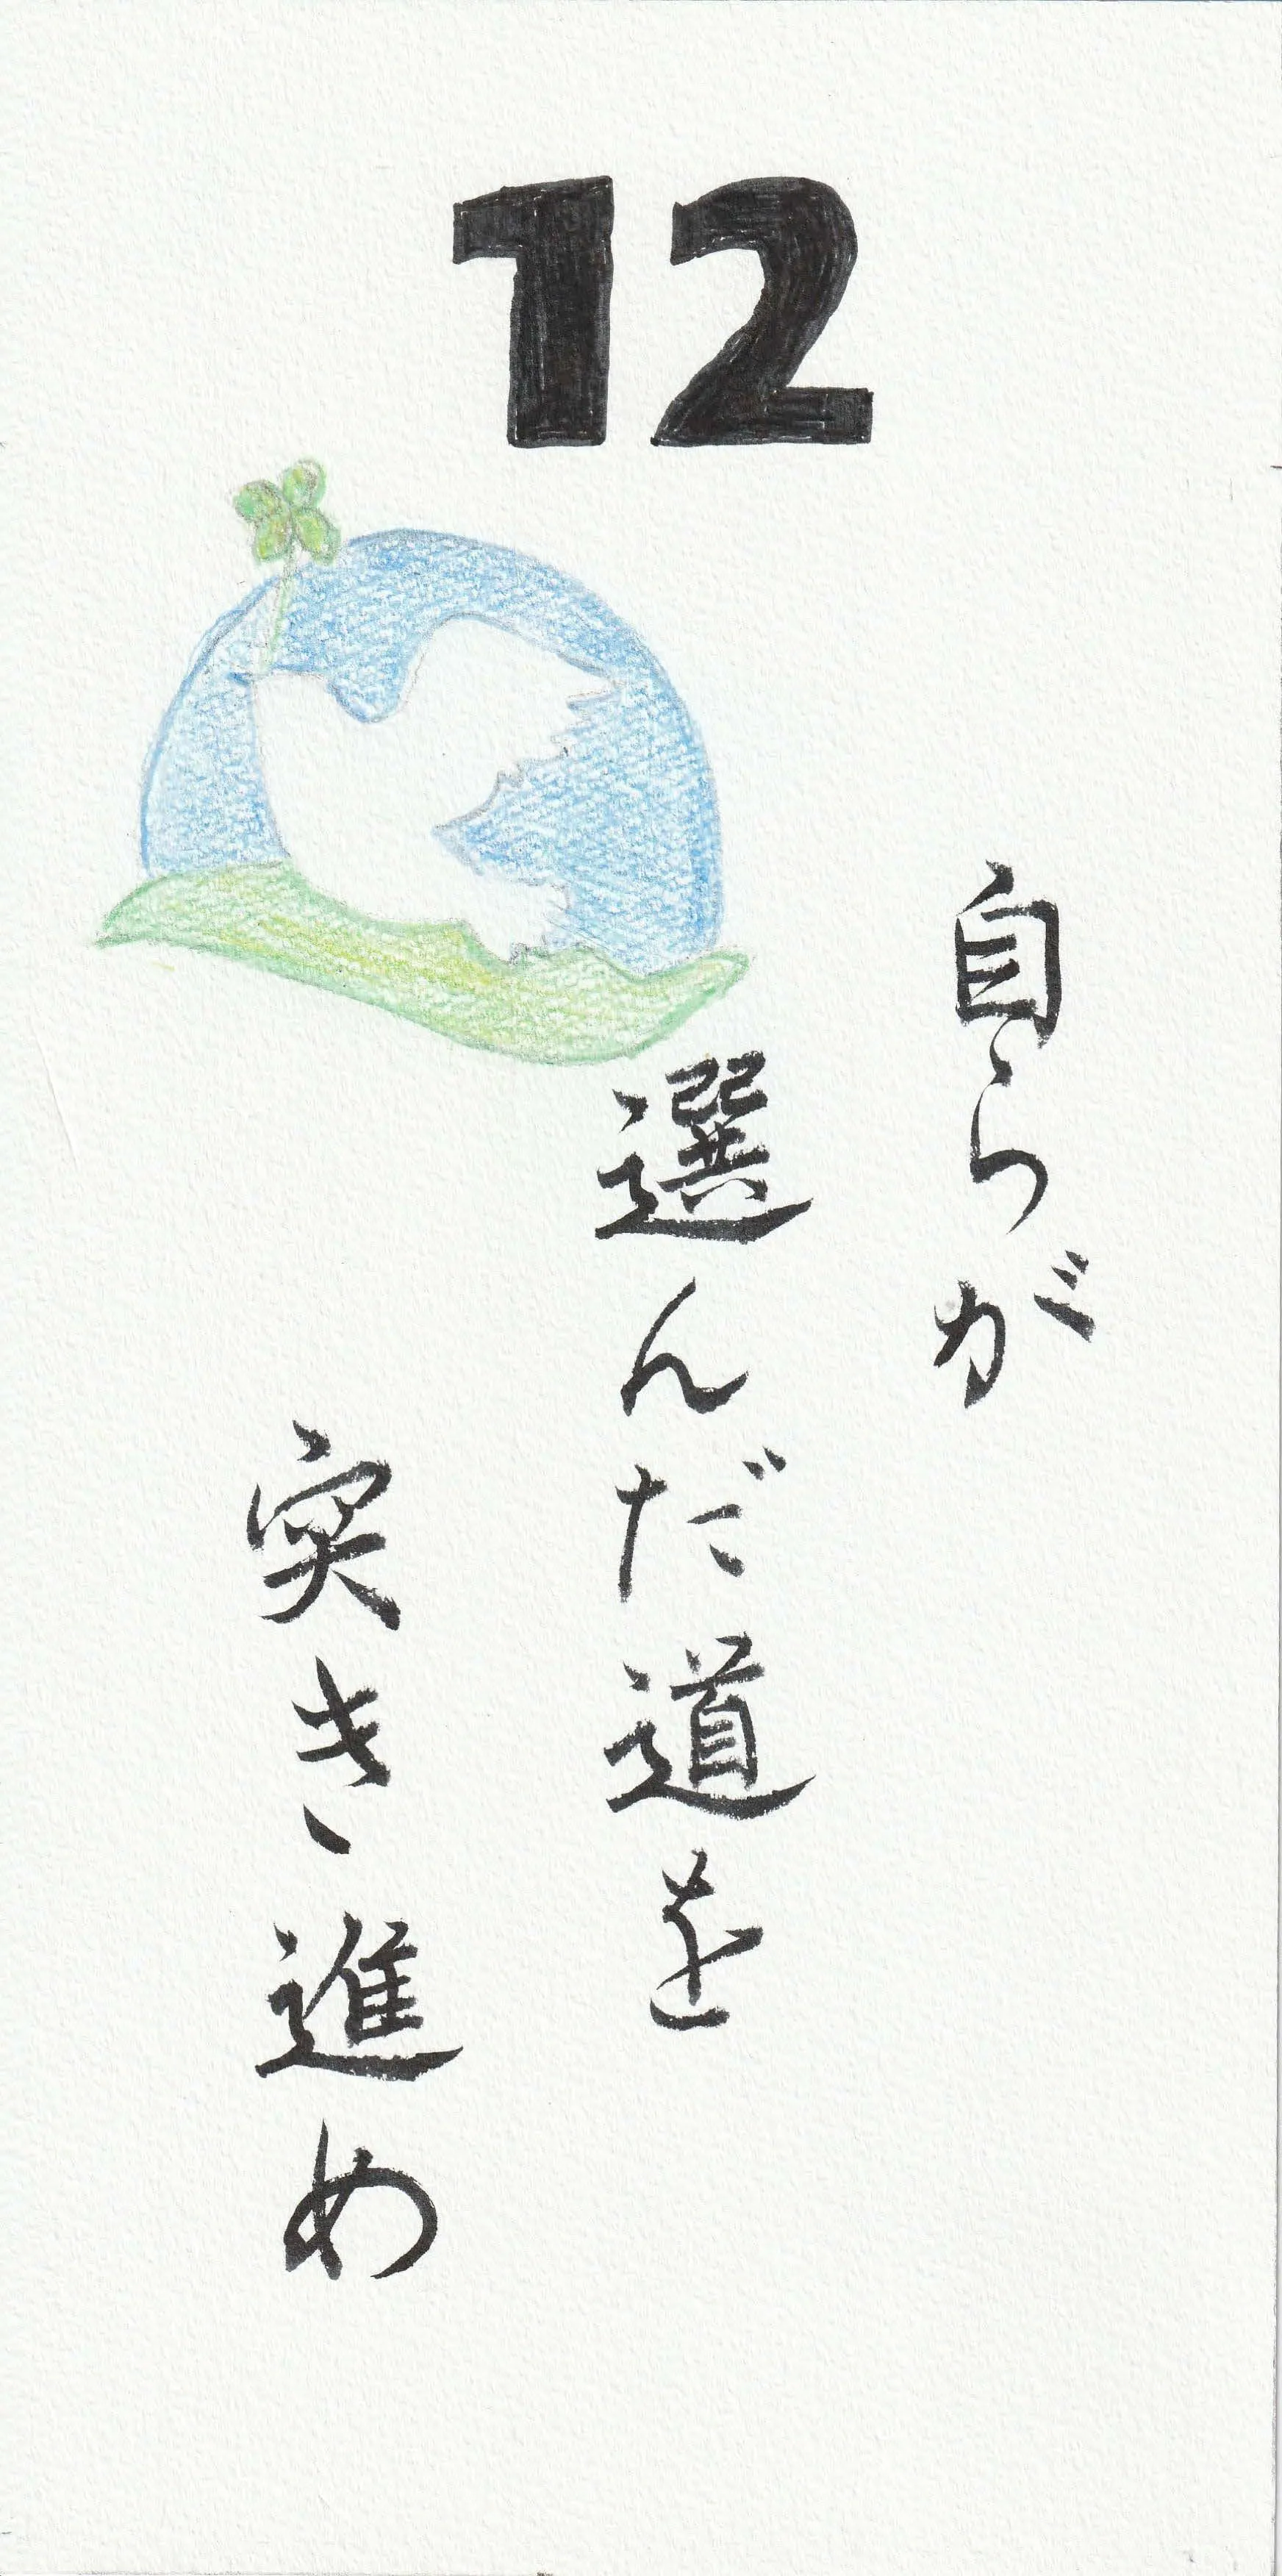 12
自らが
選んだ道を
突き進め